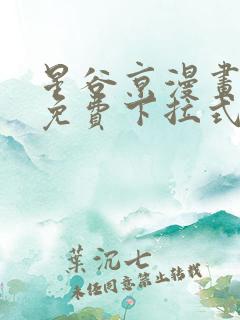 星谷京漫畫
免費下拉式
葉沉七
未經同意禁止轉載